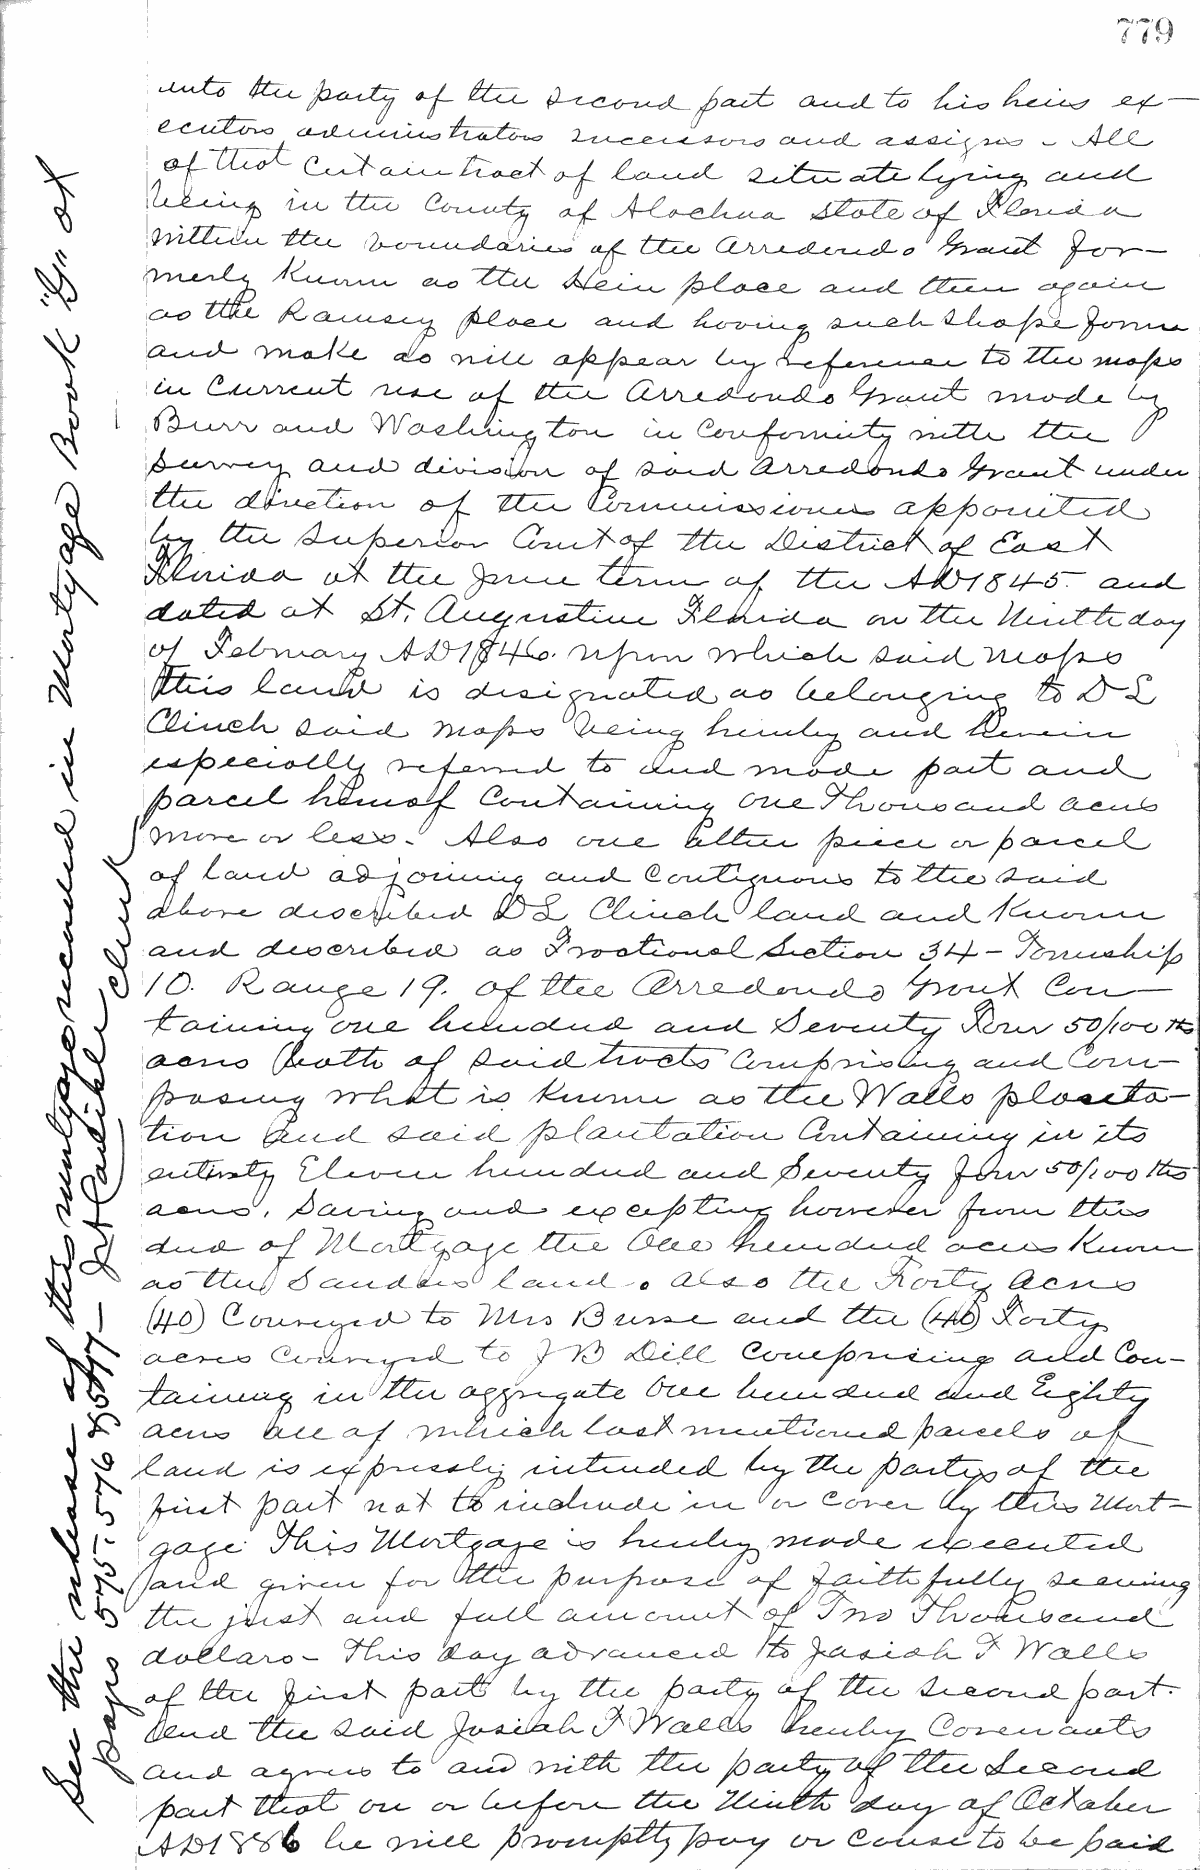 779
unto the party of the second part and to his heirs ex-
ecutors administrators successors and assigns - All
of that certain tract of land situate lying and
being in the County of Alachua State of Florida
within the boundaries of the Arredondo Grant for-
merly known as the Hein place and then again
as the Ramsey place and having such shape forme
and make as will appear by reference to the maps
in current use of the Arredondo Grant made by
Burr and Washington in conformity with the
survey and division of said Arredondo Grant under
the direction of the Commissioners appointed
by the Superior Court of the District of East
Florida at the June term of the AD 1845. and
dated at St. Augustine Florida on the Ninth day
of February AD 1846. upon which said maps
this land is designated as belonging to D L
Clinch said maps being hereby and herein
especially referred to and made part and
parcel hereof containing one Thousand acres
more or less. Also one other piece or parcel
of land adjoining and contiguous to the said
above described D L Clinch land and known
and described as Fractional Section 34 - Township
10. Range 19. of the Arredondo Grant con-
taining one hundred and Seventy Four 50/100 ths
acres both of said tracts comprising and com-
posing what is known as the Walls planta-
tion and said plantation containing in its
entirety Eleven hundred and Seventy four 50/100 ths
acres. Saving and excepting however from this
deed of Mortgage the One hundred acres known
as the Sanders land. also the Forty acres
(40) Conveyed to Mrs Burse and the (40) Forty
acres conveyed to J B Dill comprising and con-
taining in the aggregate One hundred and Eighty
acres all of which last mentioned parcels of
land is expressly intended by the partys of the
first part not to include in or cover by this Mort-
gage. This Mortgage is hereby made executed
and given for the purpose of faithfully securing
the just and full amount of Two Thousand
dollars - This day advanced to Josiah T Walls
of the first part by the party of the second part.
and the said Josiah T Walls hereby covenants
and agrees to and with the party of the second
part that on or before the Ninth day of October
AD 1886 he will promptly pay or cause to be paid
See the release of this mortgage recorded in Mortgage Book "G" at
pages 575. 576 & 577 - Clerk